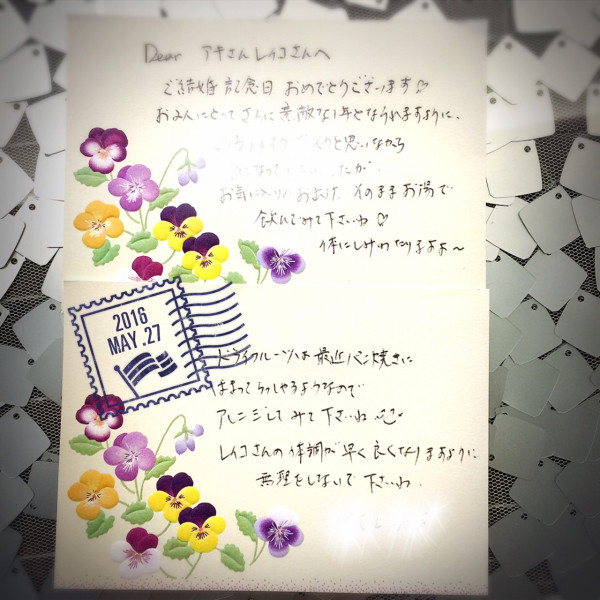 Dear アキさんレイコさんへ
ご結婚記念日 おめでとうございます♡
お2人にとってさらに素敵な1年となられますように。
と思いながら
になって
お気に入りの そのままお湯で
飲んでみて下さいね♡
体にしみわたりますよ〜
2016
MAY.27
ドライフルーツは最近パン焼きに
はまってらっしゃるようなので
アレンジしてみて下さいね
レイコさんの体調が早く良くなりますように
無理をしないで下さいね.